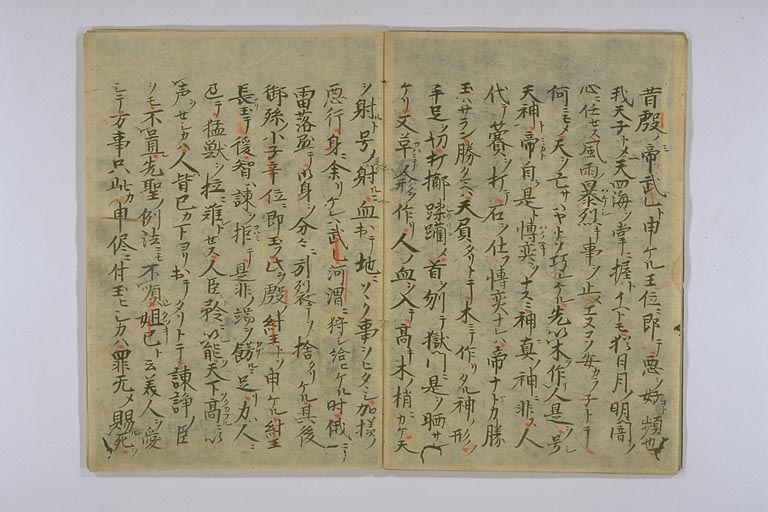 昔殷ノ帝武乙ト申ケル王位ニ即テ悪ヲ好頻也
我天子トメ天四海ヲ掌ニ握ト云トモ猶日月ノ明暗ヲ
心ニ任セス風雨暴烈キ事ヲ止メエヌコソ安カラ子トテ
何ニモメ天ヲ亡サハヤトソ巧ケル先以木作人是ヲ号
天神ト帝自是ト博奕ヲナス神真ノ神ニ非ス人
代テ賽ヲ打チ石ヲ仕フ博奕ナレハ帝ナトカ勝
玉ハサラン勝タマヘハ天負タリトテ木ニテ作リタル神ノ形ヲ
手足ヲ切打擲蹂躙メ首ヲ刎テ獄門ニ是ヲ晒サ
ケリ又革ニテ人形ヲ作リ人ノ血ヲ入テ高キ木ノ梢ニカケ天
ヲ射ト号メ射ルニ血出テ地ニソヽク事ヲヒタヽシ加様ノ
悪行身ニ余リケレハ武乙河渭ニ狩シ給ヒケル時俄ニ
雷落懸テ御身ヲ分々ニ引裂テソ捨タリケル其後
御孫小子帝辛位ニ即玉フ是ヲ殷ノ紂王トソ申ケル紂王
長玉テ後智ハ諫ヲ拒テ是非ノ端ヲ餝ニ足リ力ハ人ニ
過テ猛獣ヲ拉ニ難トセス人臣ニ矜ルニ以能天下ニ高ルニ以
声ヲセシカハ人皆己カ下ヨリ出テタリトテ諫諍ノ臣
ヲモ不置先聖ノ例法ニモ不順妲己ト云美人ヲ愛
シテ万事只此カ申侭ニ付玉ヒシカハ罪无メ賜死ヲ